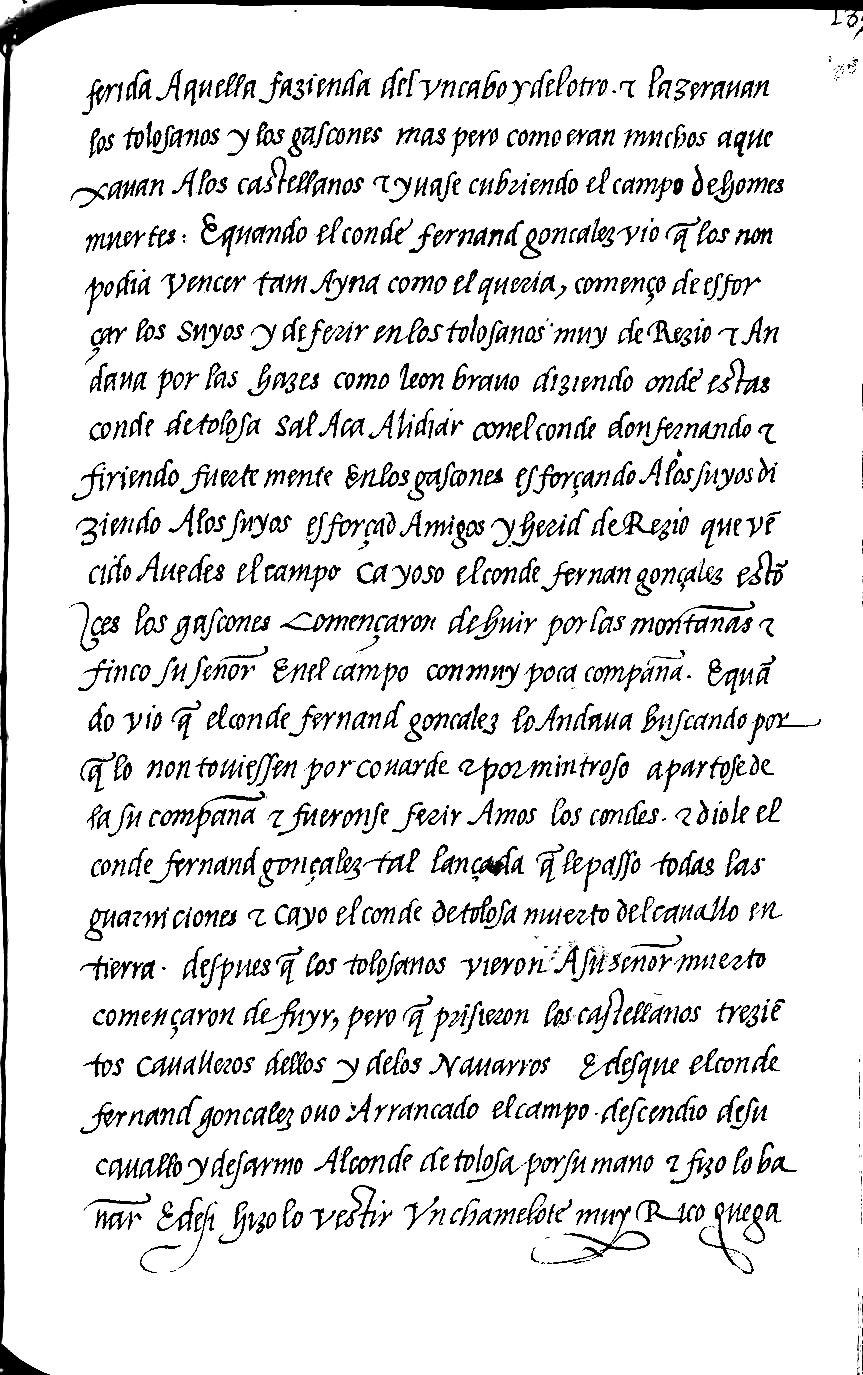 ferida Aquella fazienda del vn cabo y del otro. ⁊ lazerauan
los tolosanos y los gascones mas pero como eran muchos aque
xauan Alos castellanos ⁊ yuase cubriendo el campo de homes
muertes: E quando el conde fernand goncalez vio q̄ los non
podia vencer tam Ayna como el queria, començo de esfor
çar los suyos y de ferir en los tolosanos muy de Rezio ⁊ An
daua por las hazes como leon brauo diziendo onde estas
conde de tolosa sal Aca A lidiar con el conde don fernando ⁊
firiendo fuerte mente En los gascones esforçando Alos suyos di
ziendo Alos suyos esforçad Amigos y herid de Rezio que vē
cido Auedes el campo Ca yo so el conde fernan gonçalez estō
çes los gascones Començaron de huir por las montan̄as ⁊
finco su sen̄or En el campo con muy poca compan̄a. E quā
do vio q̄ el conde fernand goncalez lo Andaua buscando por
q̄ lo non touiessen por couarde ⁊ por mintroso apartose de
la su compan̄a ⁊ fueronse ferir Amos los condes. ⁊ diole el
conde fernand gonçalez tal lançada q̄ le passo todas las
guarniciones ⁊ cayo el conde de tolosa muerto del cauallo en
tierra. despues q̄ los tolosanos vieron A su sen̄or muerto
començaron de fuyr, pero q̄ prisieron los castellanos treziē
tos caualleros dellos y delos Nauarros E desque el conde
fernand goncalez ouo Arrancado el campo. descendio de su
cauallo y desarmo Al conde de tolosa por su mano ⁊ fizo lo ba
n̄ar E desi hizo lo vestir Vn chamelote muy Rico que ga